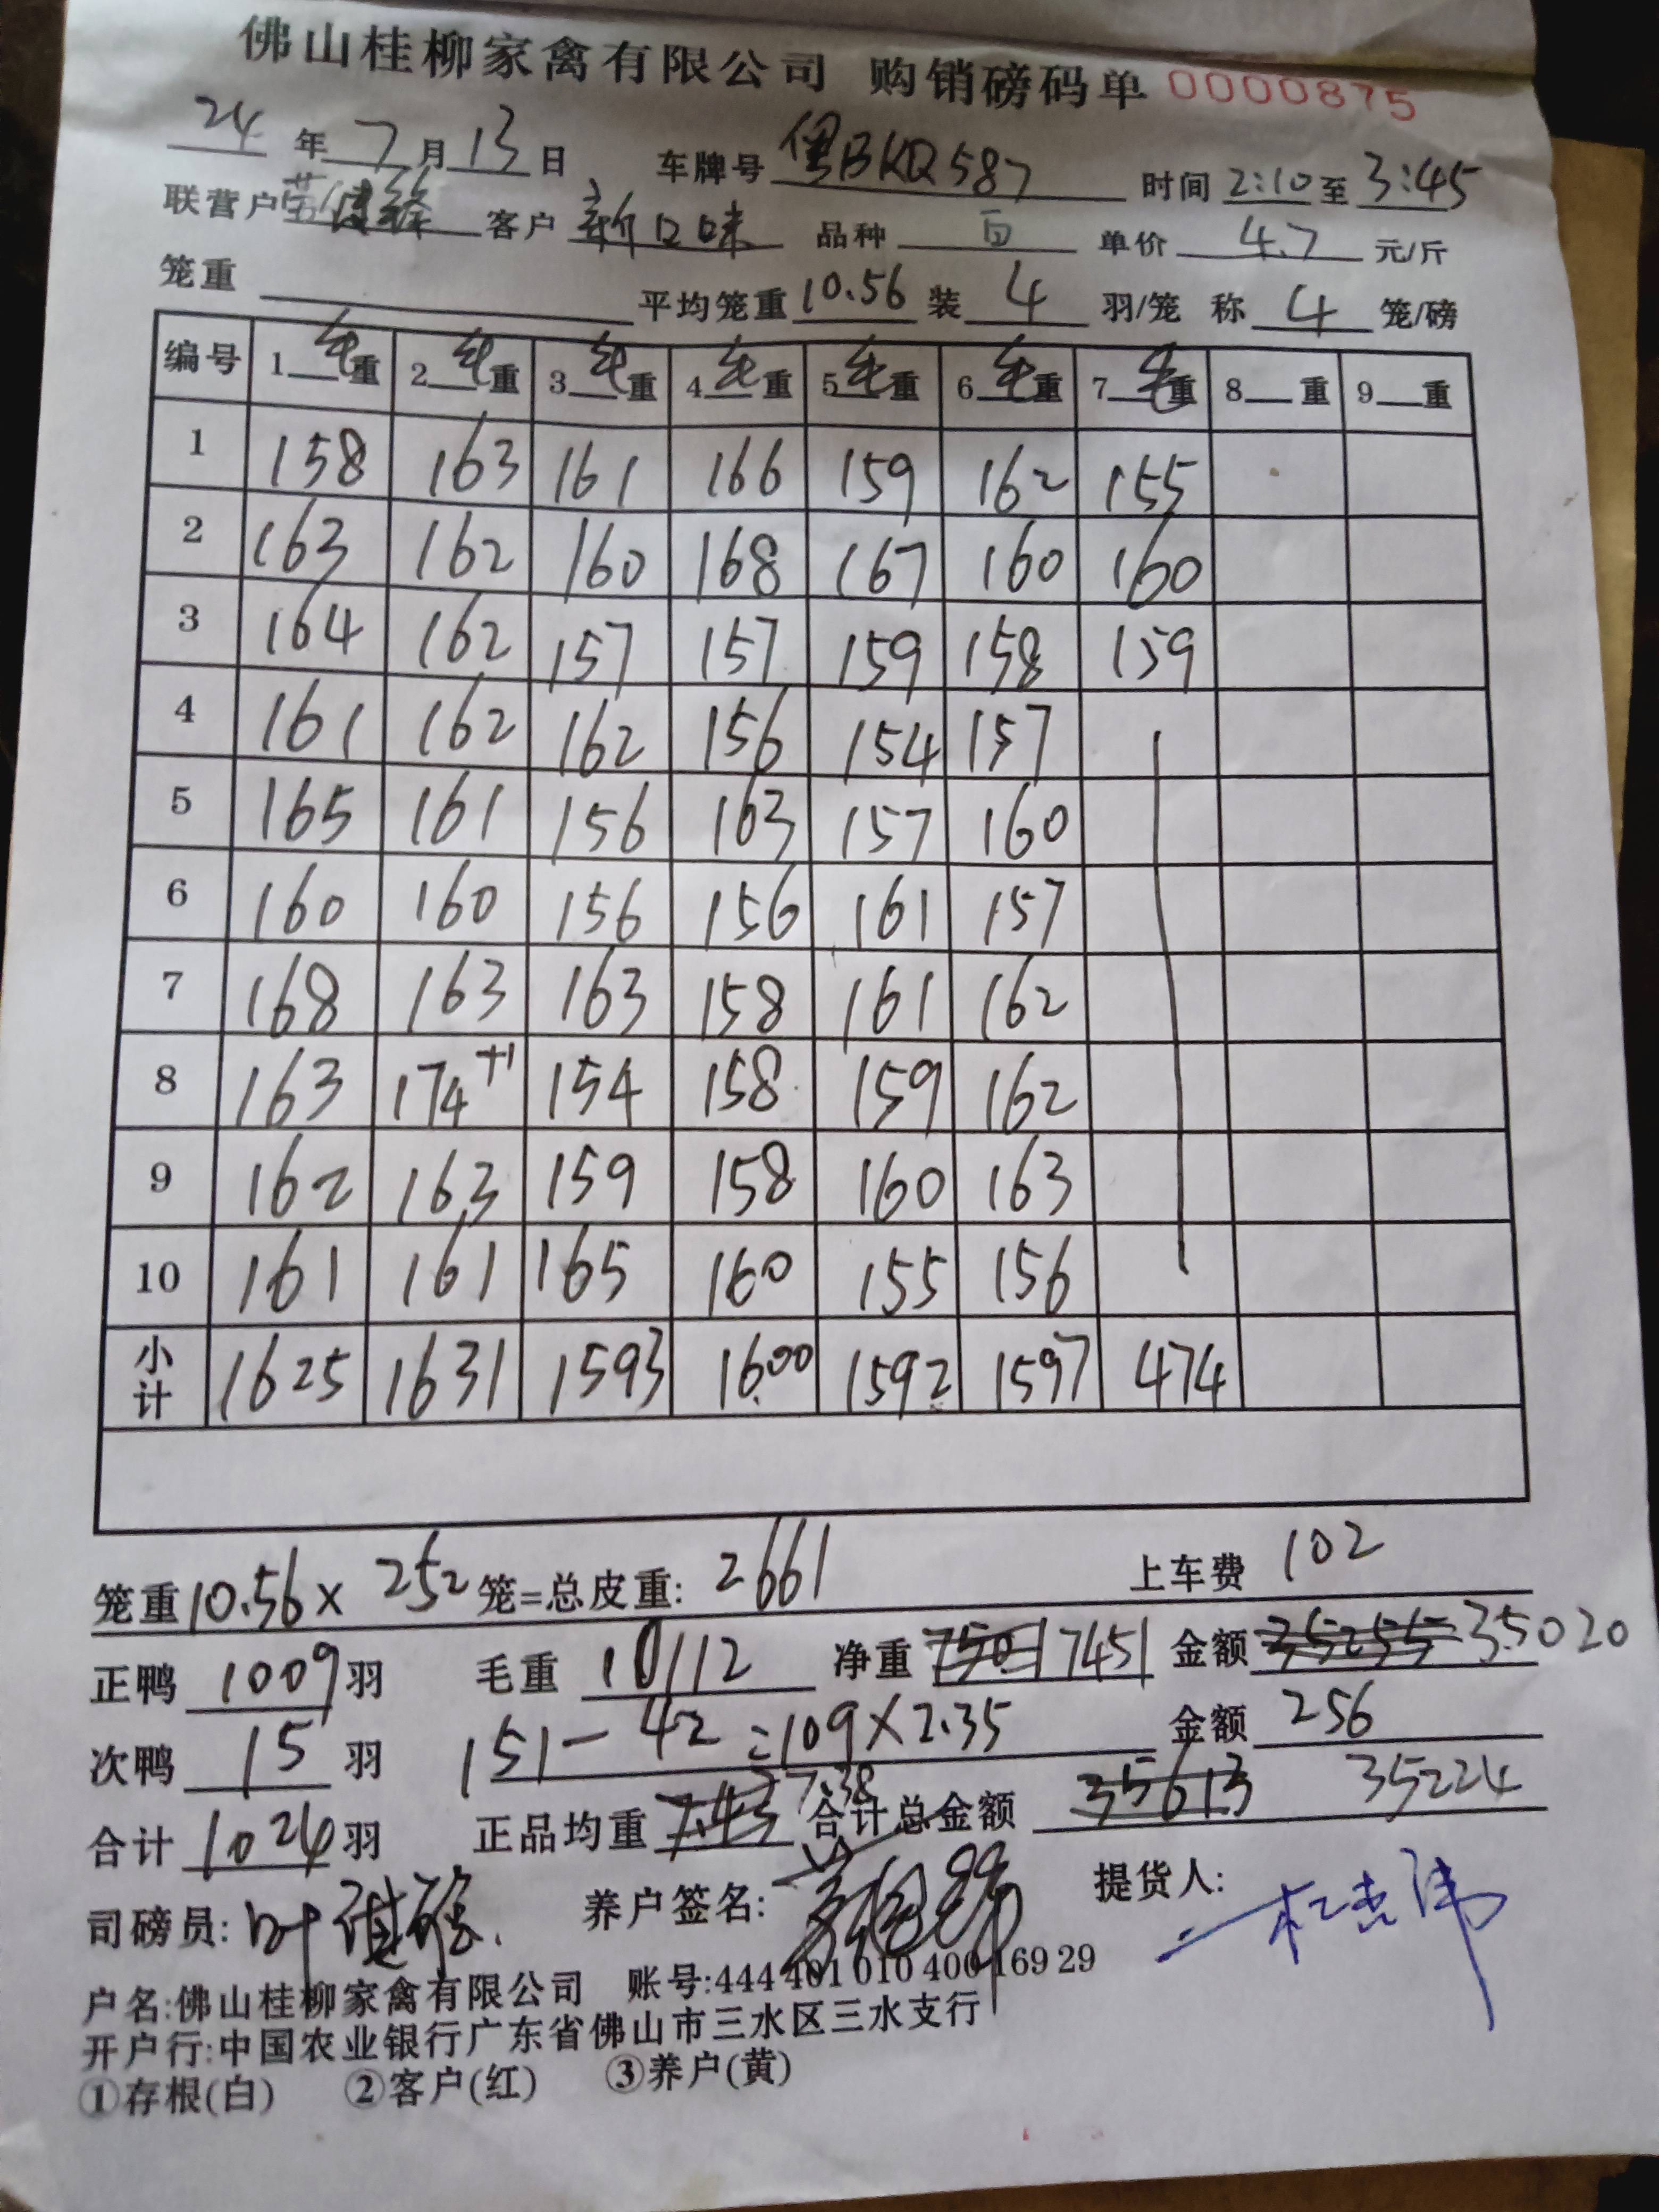 佛山桂柳家禽有限公司 购销磅码单 0000875
24 年 7 月 13 日 车牌号 BKQ587 时间 2:10 至 3:45
联营户 客户 新口味 品种 白 单价 4.7 元/斤
笼重 平均笼重 10.56 装 4 羽/笼 称 4 笼/磅
编号 1 毛重 2 毛重 3 毛重 4 毛重 5 毛重 6 毛重 7 毛重 8 重 9 重
1 158 163 161 166 159 162 155
2 163 162 160 168 167 160 160
3 164 162 157 157 159 158 159
4 161 162 162 156 154 157
5 165 161 156 163 157 160
6 160 160 156 156 161 157
7 168 163 163 158 161 162
8 163 174+1 154 158 159 162
9 162 163 159 158 160 163
10 161 161 165 160 155 156
小计 1625 1631 1593 1600 1592 1597 474
笼重 10.56 × 252 笼=总皮重: 2661 上车费 102
正鸭 1009 羽 毛重 10112 净重 7451 金额 35255 35020
次鸭 15 羽 151-42=109×2.35 金额 256
合计 1024 羽 正品均重 7.43 7.38 合计总金额 35613 35224
司磅员: 叶 养户签名: 提货人: 杜杰伟
户名:佛山桂柳家禽有限公司 账号:444 401 010 400 169 29
开户行:中国农业银行广东省佛山市三水区三水支行
①存根(白) ②客户(红) ③养户(黄)